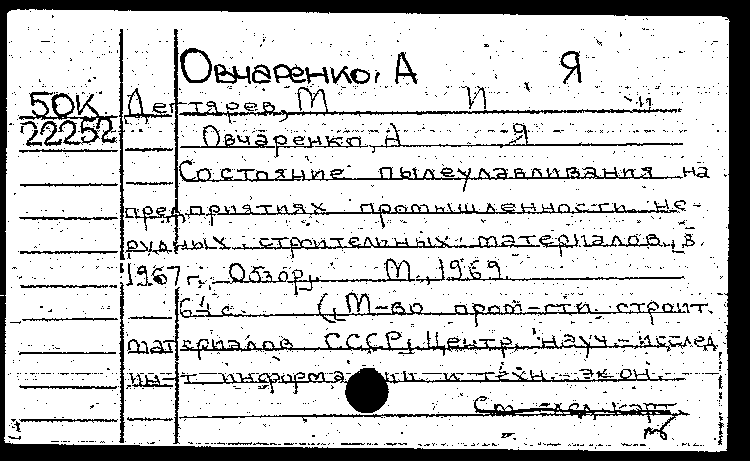 Овчаренко, А Я
50К Дегтярев, М И и
22252 Овчаренко, А Я
Состояние пылеулавливания на
предприятиях промышленности не-
рудных строительных материалов в
1967 г. Обзор. М., 1969.
64 с. (М-во пром-сти строит.
материалов СССР, Центр. науч.-исслед
ин-т информации и техн.-экон.
См. след. карт.